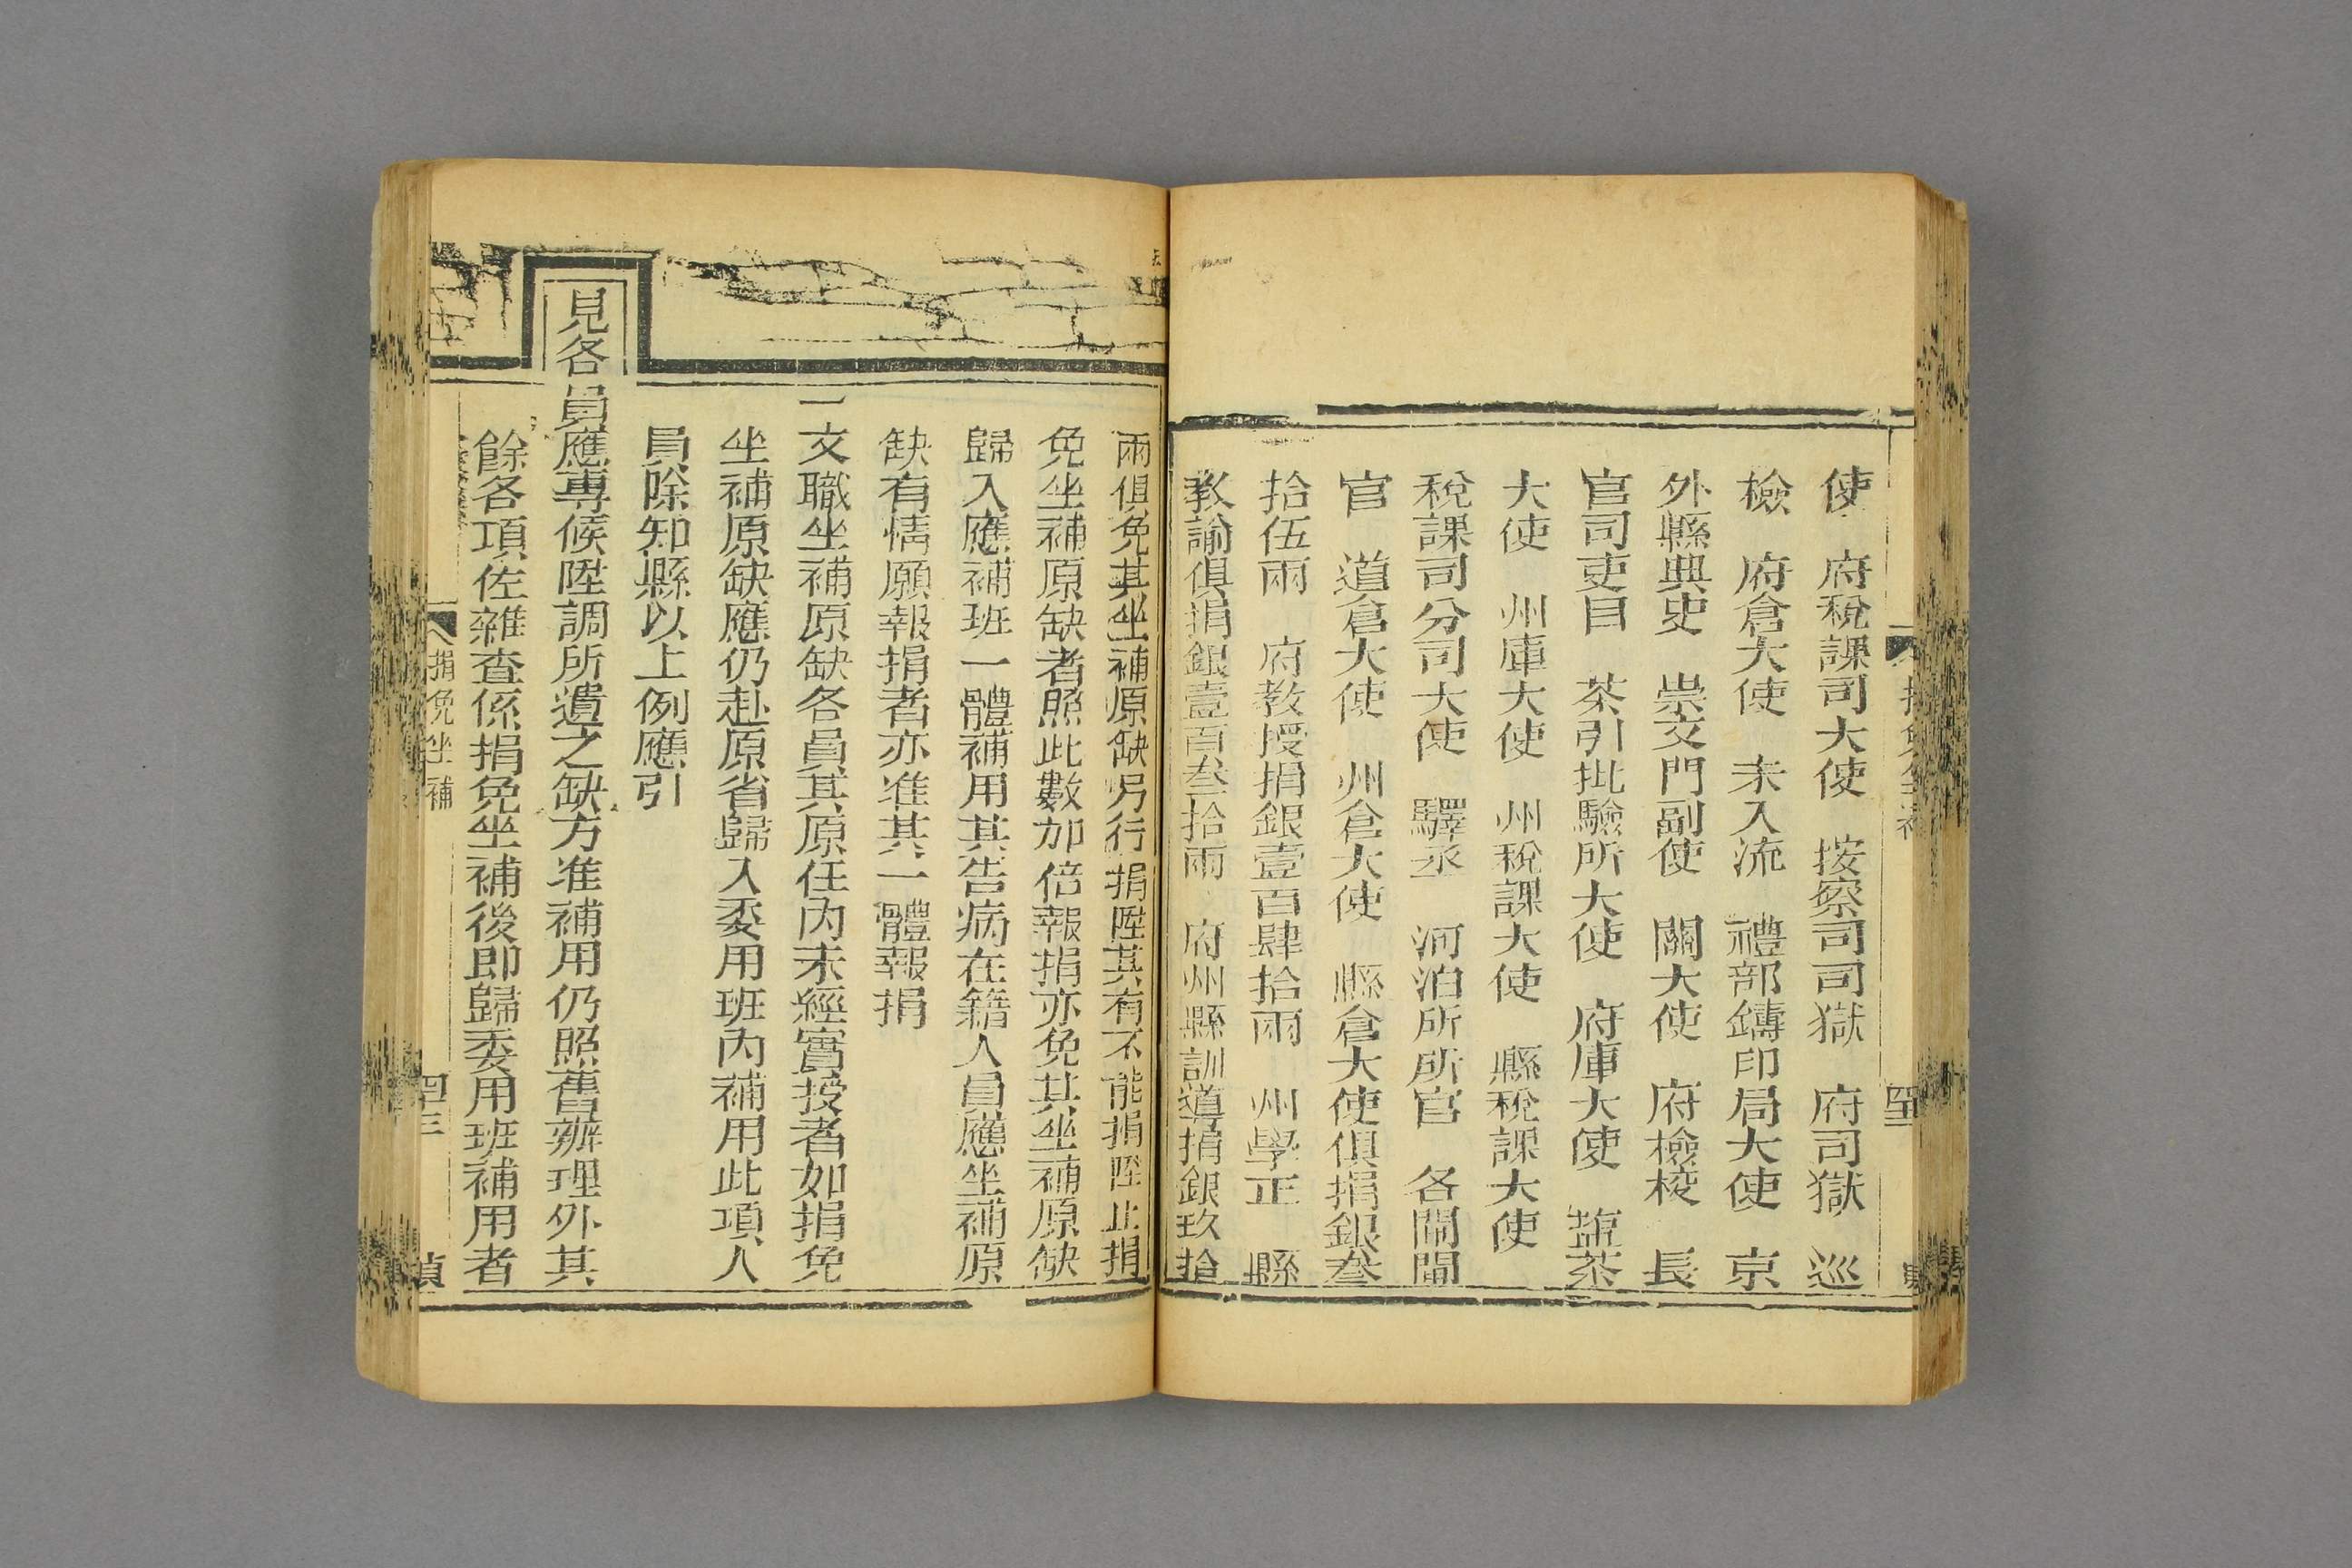 使　府稅課司大使　按察司司獄　府司獄　巡
檢　府倉大使　未入流　禮部鑄印局大使　京
外縣典史　崇文門副使　關大使　府檢校　長
官司吏目　茶引批驗所大使　府庫大使　鹽茶
大使　州庫大使　州稅課大使　縣稅課大使
稅課司分司大使　驛丞　河泊所所官　各閘閘
官　道倉大使　州倉大使　縣倉大使俱捐銀叁
拾伍兩　府教授捐銀壹百肆拾兩　州學正　縣
教諭俱捐銀壹百叁拾兩　府州縣訓導捐銀玖拾
兩俱免其坐補原缺另行捐陞其有不能捐陞止捐
免坐補原缺者照此數加倍報捐亦免其坐補原缺
歸入應補班一體補用其告病在籍人員應坐補原
缺有情願報捐者亦准其一體報捐
一文職坐補原缺各員其原任內未經實授者如捐免
坐補原缺應仍赴原省歸入委用班內補用此項人
員除知縣以上例應引
見各員應專候陞調所遺之缺方准補用仍照舊辦理外其
餘各項佐雜查係捐免坐補後即歸委用班補用者
捐免坐補
四三
貞